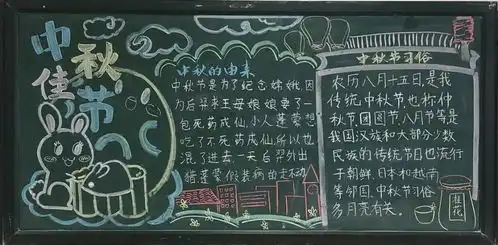 中秋
佳节
中秋的由来
中秋节是为了纪念嫦娥,因
为后羿求王母娘娘要了一
包死药成仙,小人蓬蒙想
吃了不死药成仙,所以也
混了进去一天后羿外出
猎蓬蒙假装病的走不动
中秋节习俗
农历八月十五日,是我
传统中秋节也称仲
秋节团圆节八月节等是
我国汉族和大部分少数
民族的传统节日也流行
于朝鲜,日本和越南
等邻国,中秋节习俗
多月亮有关。
桂花